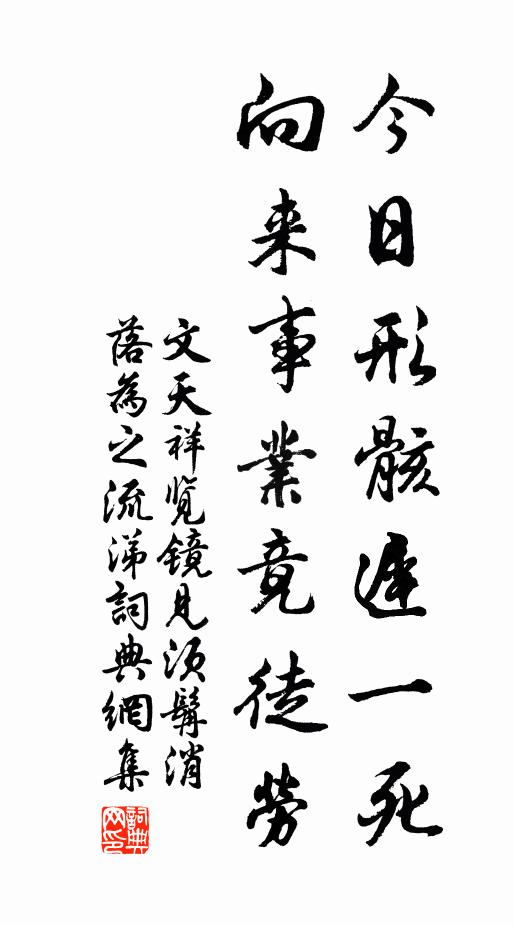 今日形骸遲一死
向来事業竟徒勞
文天祥览鏡見須髯消
落為之流涕詞典網集
詞典
网印